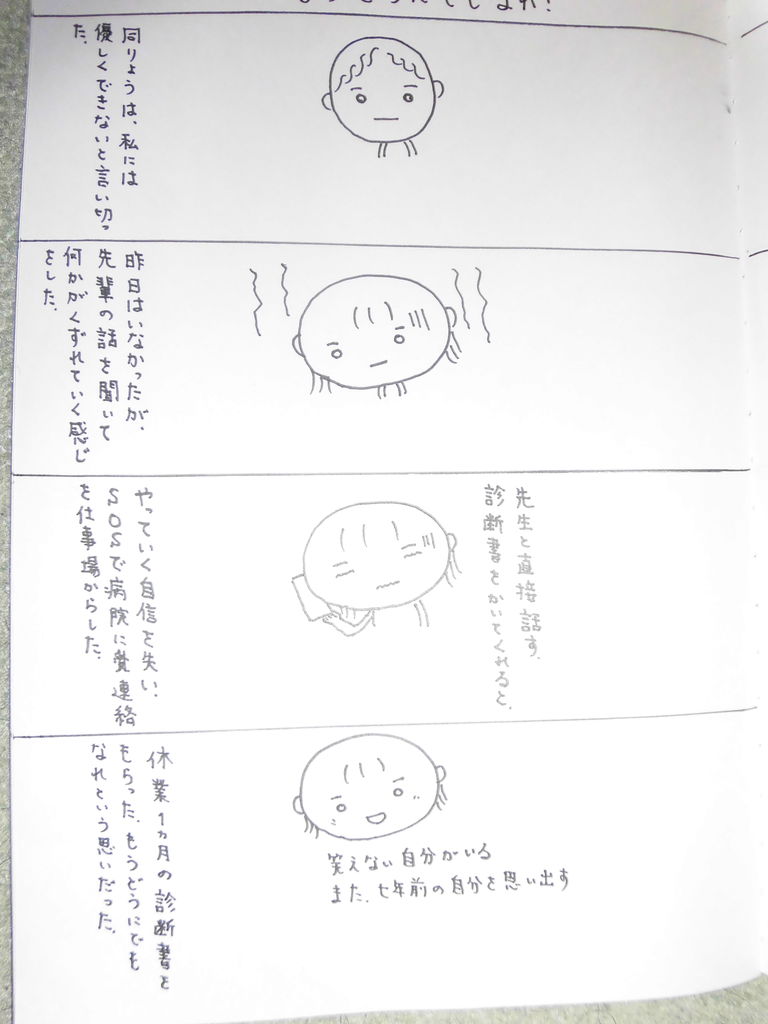 同りょうは、私には
優しくできないと言い切っ
た。
昨日はいなかったが、
先輩の話を聞いて
何かがくずれていく感じ
をした。
先生と直接話す、
診断書をかいてくれると、
やっていく自信を失い、
SOSで病院に電連絡
を仕事場からした。
休業1ヵ月の診断書を
もらった、もうどうにでも
なれという思いだった。
笑えない自分がいる
また、七年前の自分を思い出す